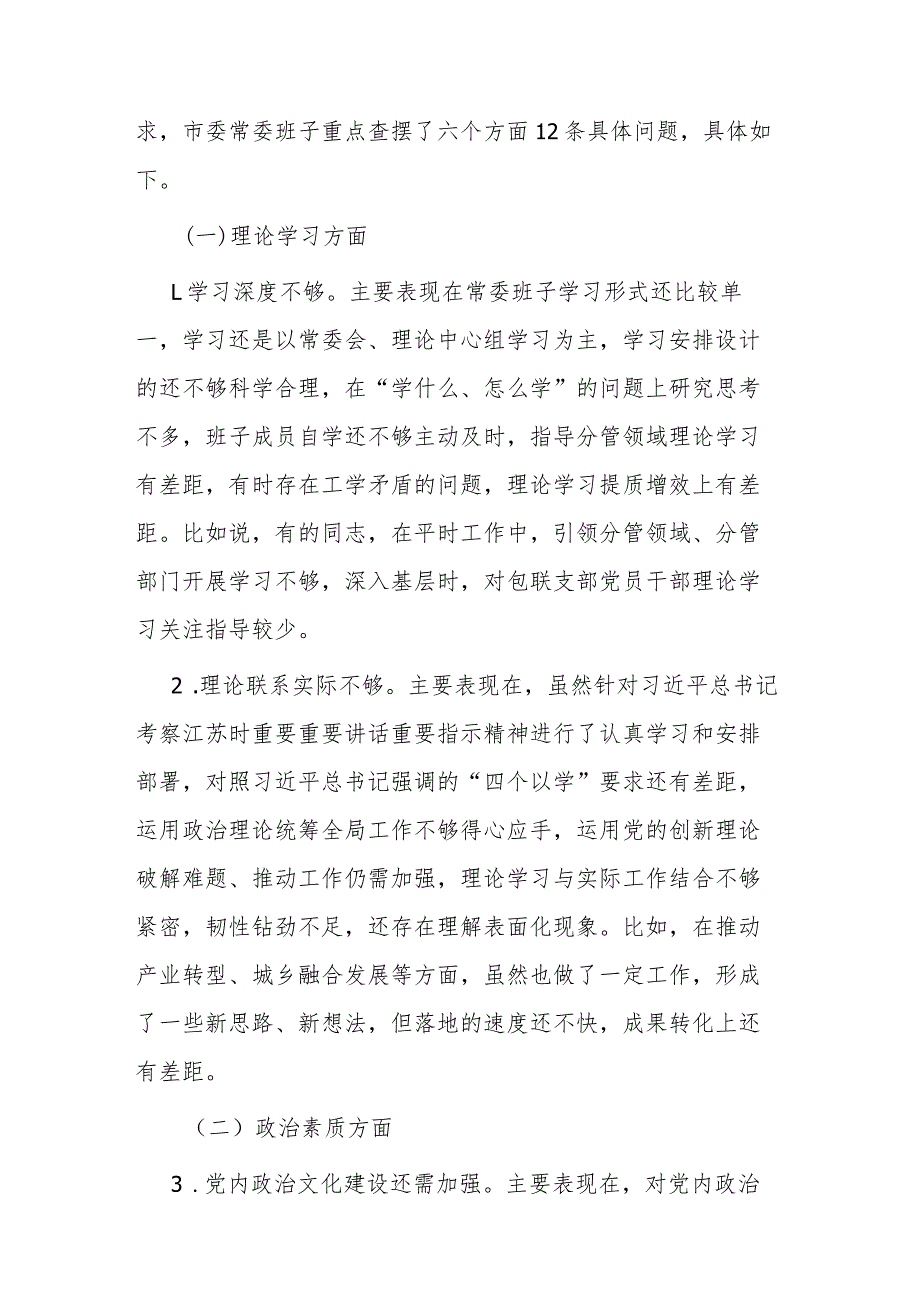 求，市委常委班子重点查摆了六个方面12条具体问题，具体如
下。
(一)理论学习方面
L学习深度不够。主要表现在常委班子学习形式还比较单
一，学习还是以常委会、理论中心组学习为主，学习安排设计
的还不够科学合理，在“学什么、怎么学”的问题上研究思考
不多，班子成员自学还不够主动及时，指导分管领域理论学习
有差距，有时存在工学矛盾的问题，理论学习提质增效上有差
距。比如说，有的同志，在平时工作中，引领分管领域、分管
部门开展学习不够，深入基层时，对包联支部党员干部理论学
习关注指导较少。
2 .理论联系实际不够。主要表现在，虽然针对习近平总书记
考察江苏时重要重要讲话重要指示精神进行了认真学习和安排
部署，对照习近平总书记强调的“四个以学”要求还有差距，
运用政治理论统筹全局工作不够得心应手，运用党的创新理论
破解难题、推动工作仍需加强，理论学习与实际工作结合不够
紧密，韧性钻劲不足，还存在理解表面化现象。比如，在推动
产业转型、城乡融合发展等方面，虽然也做了一定工作，形成
了一些新思路、新想法，但落地的速度还不快，成果转化上还
有差距。
（二）政治素质方面
3 .党内政治文化建设还需加强。主要表现在，对党内政治